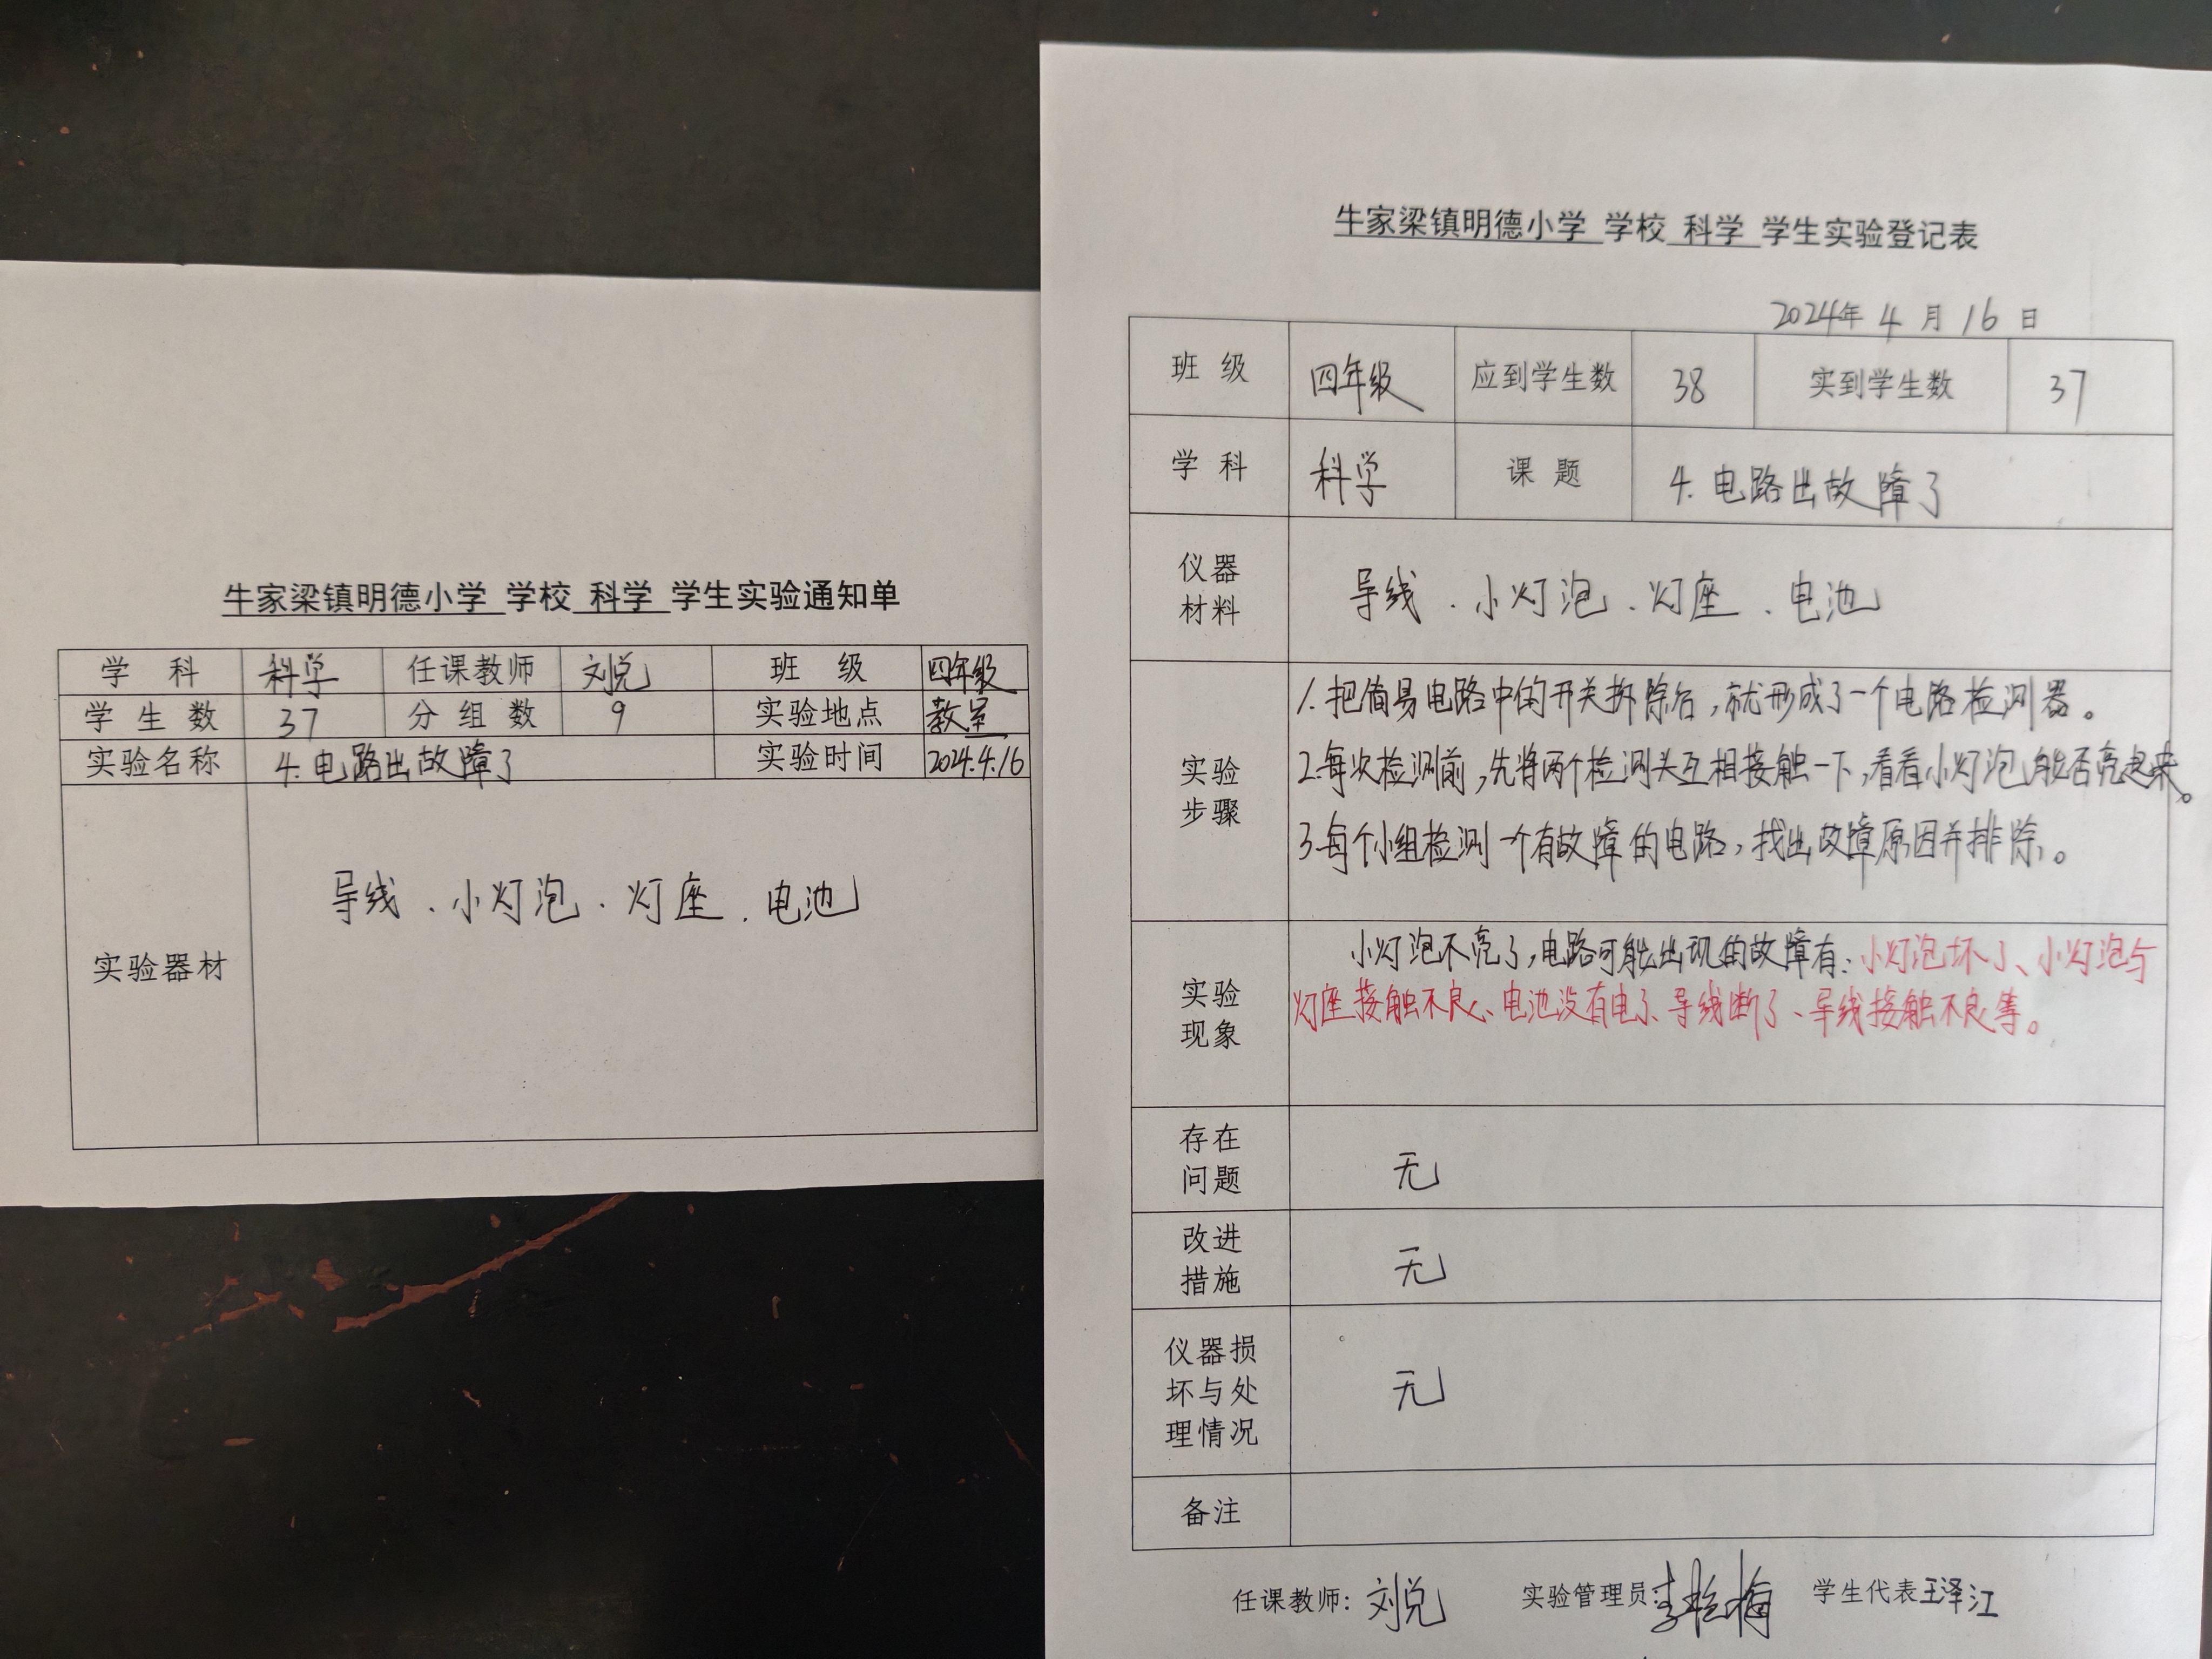 牛家梁镇明德小学 学校 科学 学生实验通知单
学 科 科学 任课教师 刘悦 班 级 四年级
学 生 数 37 分 组 数 9 实验地点 教室
实验名称 4.电路出故障了 实验时间 2024.4.16
实验器材 导线、小灯泡、灯座、电池
牛家梁镇明德小学 学校 科学 学生实验登记表
2024年 4 月 16 日
班 级 四年级 应到学生数 38 实到学生数 37
学 科 科学 课 题 4.电路出故障了
仪器
材料
导线、小灯泡、灯座、电池
实验
步骤
1.把简易电路中的开关拆除后,就形成了一个电路检测器。
2.每次检测前,先将两个检测头互相接触一下,看看小灯泡能否亮起来。
3.每个小组检测一个有故障的电路,找出故障原因并排除。
实验
现象
小灯泡不亮了,电路可能出现的故障有:小灯泡坏了、小灯泡与
灯座接触不良、电池没有电了、导线断了、导线接触不良等。
存在
问题
无
改进
措施
无
仪器损
坏与处
理情况
无
备注
任课教师:刘悦 实验管理员: 学生代表王泽江